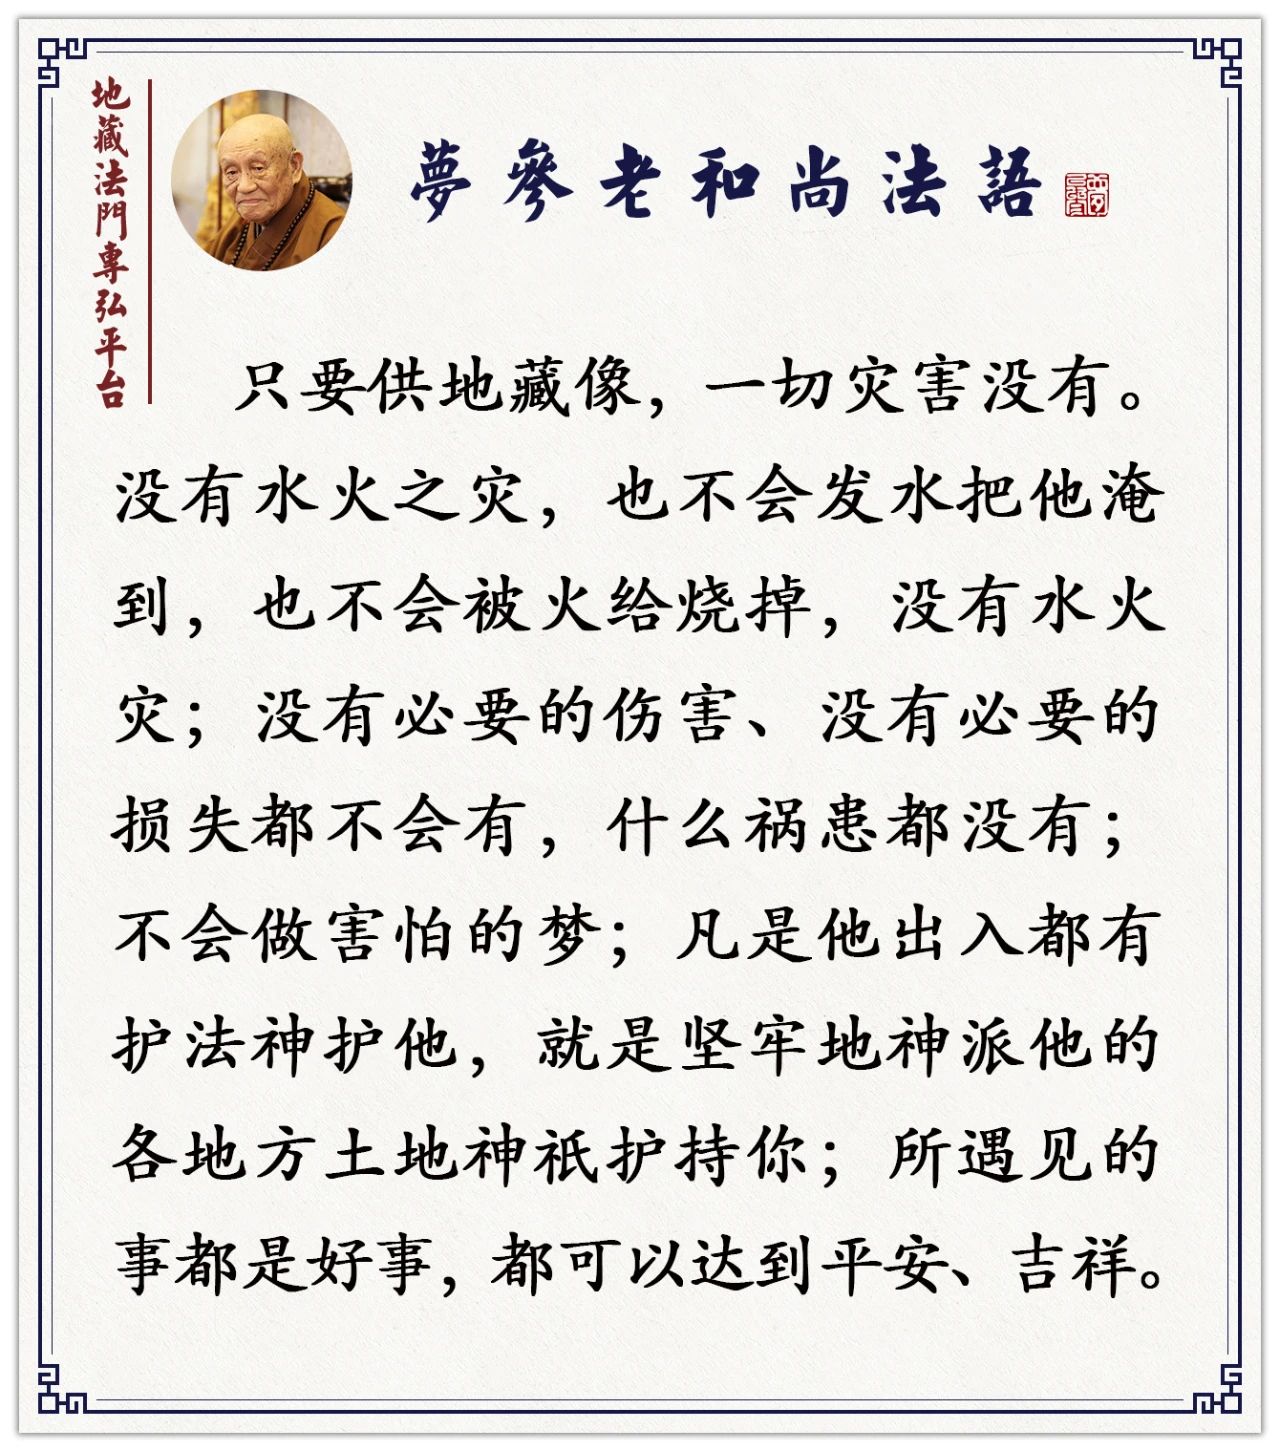 地藏法門專弘平台
夢參老和尚法語
只要供地藏像，一切灾害没有。
没有水火之灾，也不会发水把他淹
到，也不会被火给烧掉，没有水火
灾；没有必要的伤害、没有必要的
损失都不会有，什么祸患都没有；
不会做害怕的梦；凡是他出入都有
护法神护他，就是坚牢地神派他的
各地方土地神祇护持你；所遇见的
事都是好事，都可以达到平安、吉祥。